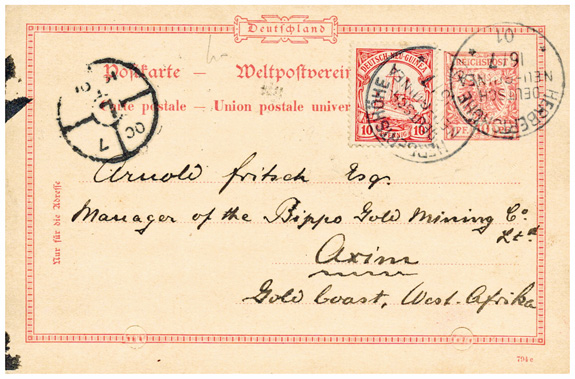 Deutschland
Postkarte — Weltpostverein
Carte postale — Union postale univer
DEUTSCH-NEU-GUINEA
10 10
REICHSPOST
HERBERTSHÖHE
DEUTSCH
NEU-GUINEA
16/7
01
OC 7
01
Arnold Fritsch Esq.
Manager of the Bippo Gold Mining Co.
Ltd.
Axim
Gold Coast, West-Afrika
Nur für die Adresse
794e